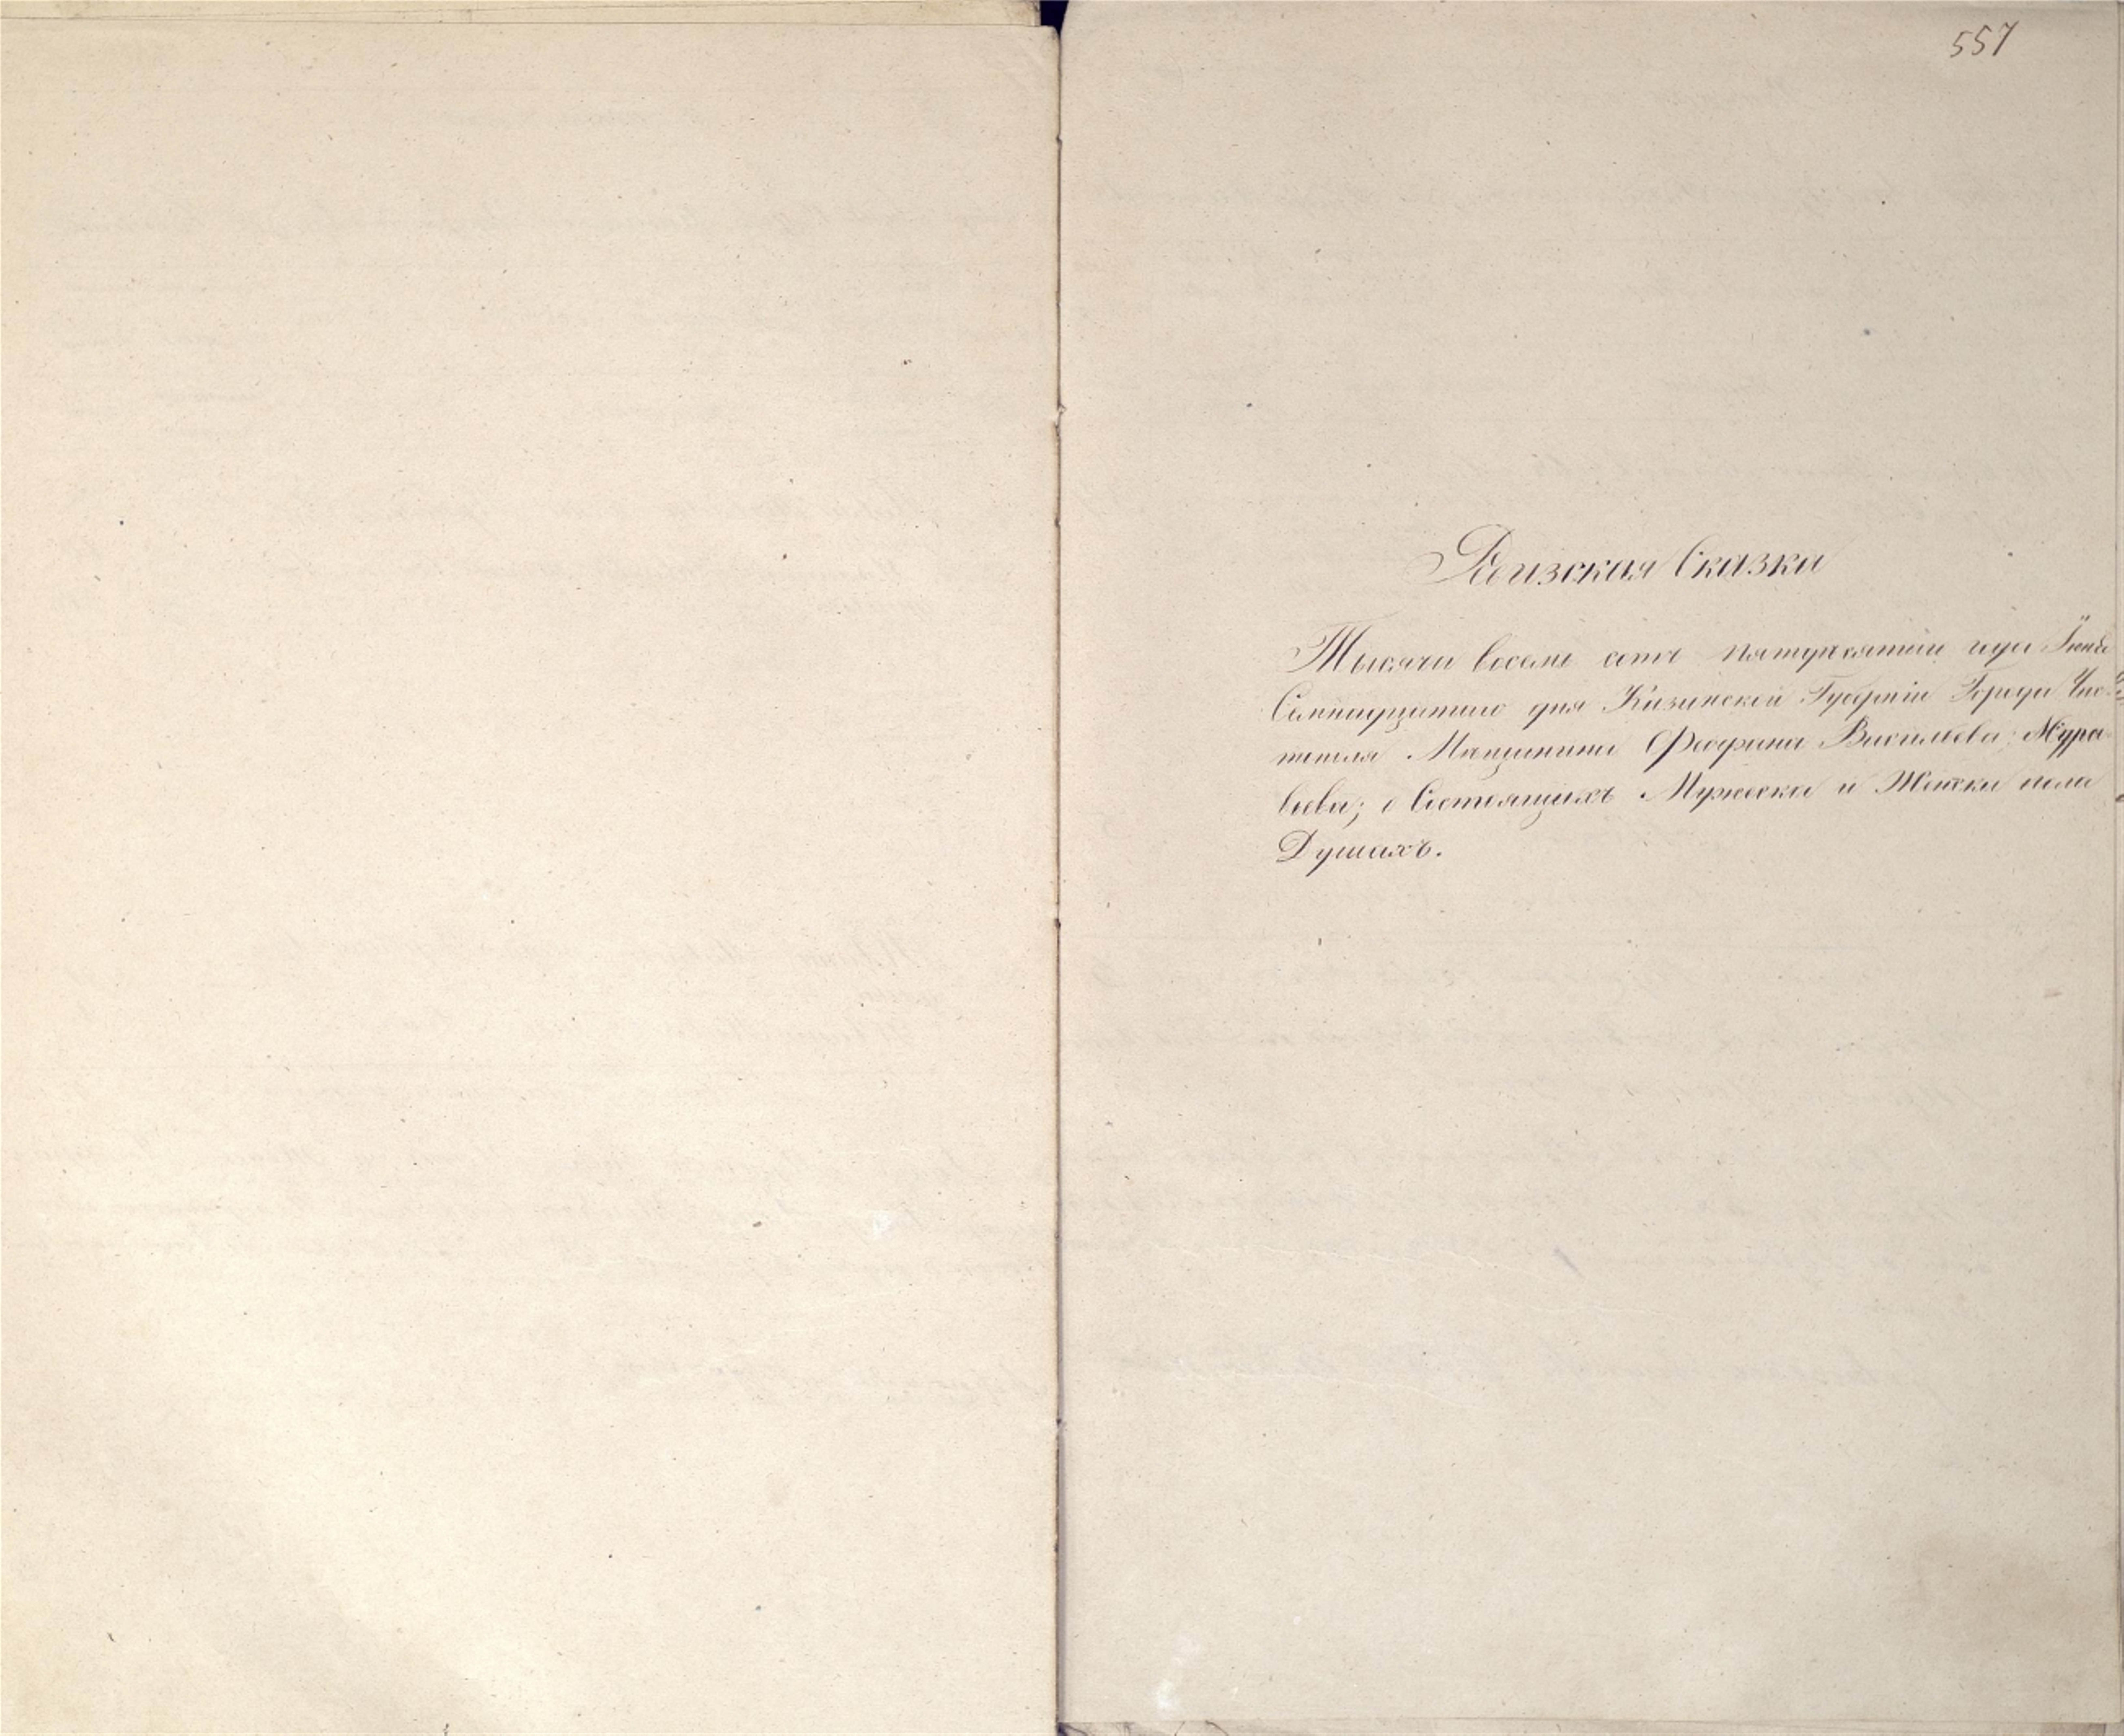 557
Ревизская Сказка
Тысяча восемь сотъ пятдесятаго года Iюня
Семнадцатаго дня Казанской Губернiи Города Чис-
тополя Мѣщанина Феофана Васильева Мура-
вьева; о Состоящихъ Мужеска и Женска пола
Душахъ.